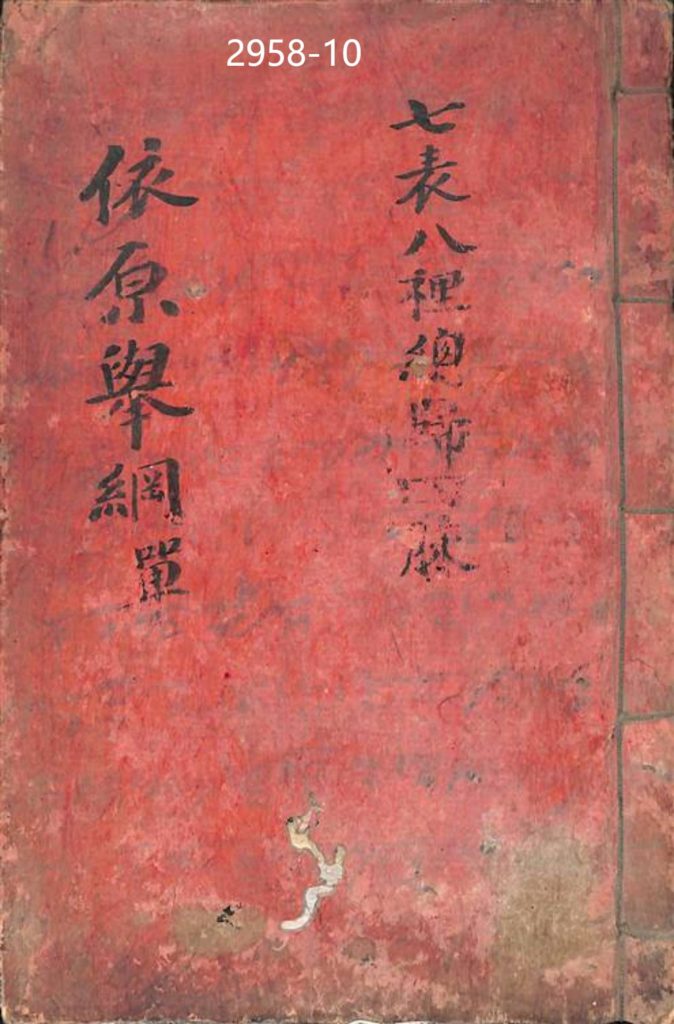 2958-10
七表八裡總歸四脉
依原舉綱單